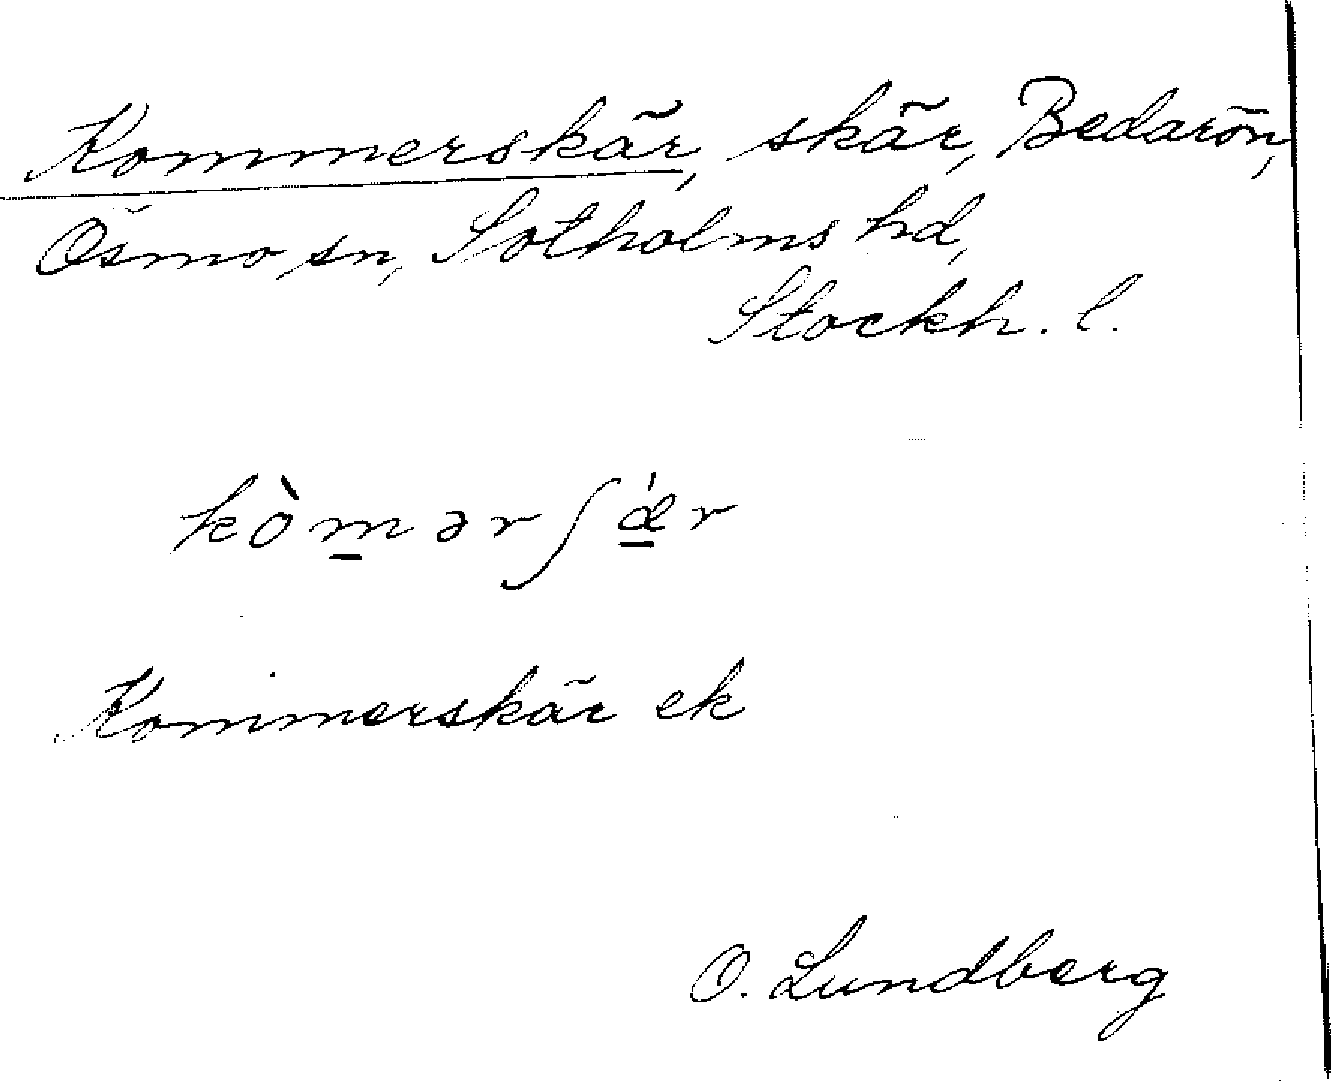 Kommerskär, skär, Bedarön,
Ösmo sn, Sotholms hd,
Stockh. l.
kòm̲ərʃǽ̲r
Kommerskär ek
O. Lundberg